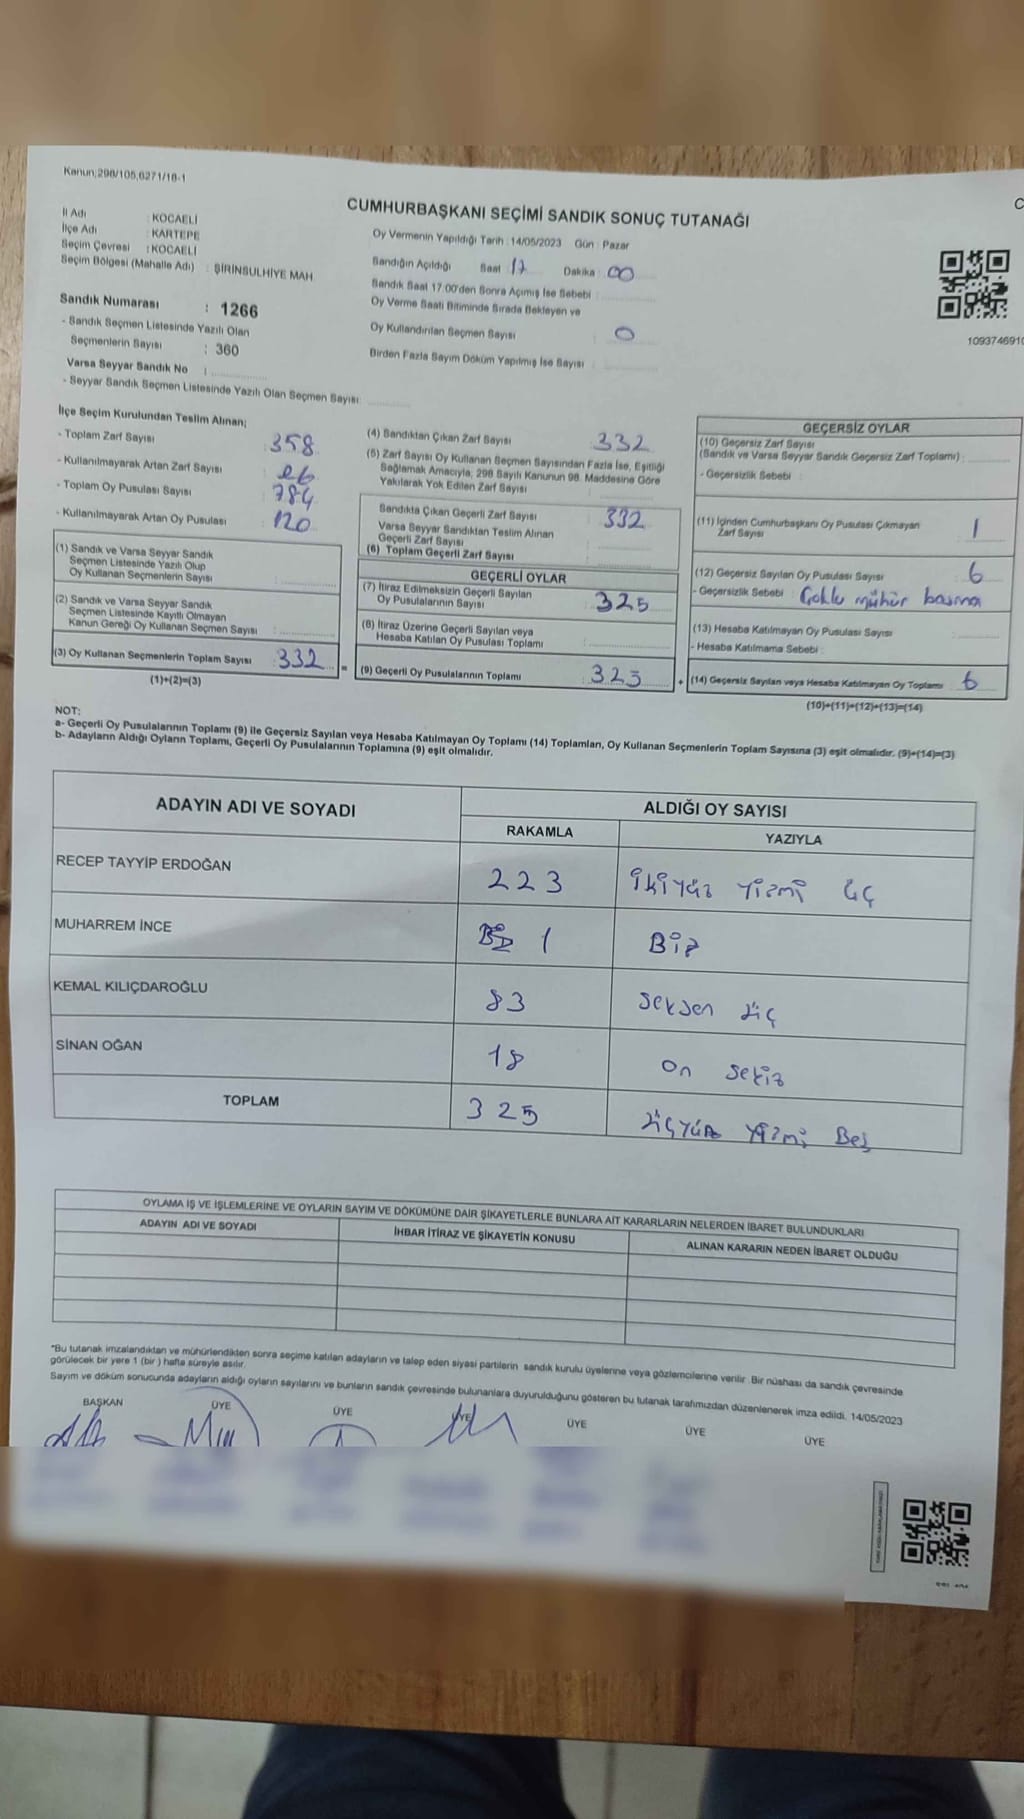 Kanun;298/105,6271/18-1
CUMHURBAŞKANI SEÇİMİ SANDIK SONUÇ TUTANAĞI
İl Adı : KOCAELİ
İlçe Adı : KARTEPE
Seçim Çevresi : KOCAELİ
Seçim Bölgesi (Mahalle Adı) : ŞİRİNSULHİYE MAH
Sandık Numarası : 1266
- Sandık Seçmen Listesinde Yazılı Olan
Seçmenlerin Sayısı : 360
Varsa Seyyar Sandık No :
- Seyyar Sandık Seçmen Listesinde Yazılı Olan Seçmen Sayısı:
Oy Vermenin Yapıldığı Tarih : 14/05/2023 Gün : Pazar
Sandığın Açıldığı Saat : 17 Dakika : 00
Sandık Saat 17:00'den Sonra Açımış İse Sebebi :
Oy Verme Saati Bitiminde Sırada Bekleyen ve
Oy Kullandırılan Seçmen Sayısı : 0
Birden Fazla Sayım Döküm Yapılmış İse Sayısı :
1093746910
İlçe Seçim Kurulundan Teslim Alınan;
- Toplam Zarf Sayısı : 358
- Kullanılmayarak Artan Zarf Sayısı : 26
- Toplam Oy Pusulası Sayısı : 784
- Kullanılmayarak Artan Oy Pusulası : 120
(1) Sandık ve Varsa Seyyar Sandık
Seçmen Listesinde Yazılı Olup
Oy Kullanan Seçmenlerin Sayısı :
(2) Sandık ve Varsa Seyyar Sandık
Seçmen Listesinde Kayıtlı Olmayan
Kanun Gereği Oy Kullanan Seçmen Sayısı :
(3) Oy Kullanan Seçmenlerin Toplam Sayısı : 332 =
(1)+(2)=(3)
(4) Sandıktan Çıkan Zarf Sayısı : 332
(5) Zarf Sayısı Oy Kullanan Seçmen Sayısından Fazla İse, Eşitliği
Sağlamak Amacıyla, 298 Sayılı Kanunun 98. Maddesine Göre
Yakılarak Yok Edilen Zarf Sayısı :
Sandıkta Çıkan Geçerli Zarf Sayısı : 332
Varsa Seyyar Sandıktan Teslim Alınan
Geçerli Zarf Sayısı :
(6) Toplam Geçerli Zarf Sayısı :
GEÇERLİ OYLAR
(7) İtiraz Edilmeksizin Geçerli Sayılan
Oy Pusulalarının Sayısı : 325
(8) İtiraz Üzerine Geçerli Sayılan veya
Hesaba Katılan Oy Pusulası Toplamı :
(9) Geçerli Oy Pusulalarının Toplamı : 325 +
GEÇERSİZ OYLAR
(10) Geçersiz Zarf Sayısı
(Sandık ve Varsa Seyyar Sandık Geçersiz Zarf Toplamı) :
- Geçersizlik Sebebi :
(11) İçinden Cumhurbaşkanı Oy Pusulası Çıkmayan
Zarf Sayısı : 1
(12) Geçersiz Sayılan Oy Pusulası Sayısı : 6
- Geçersizlik Sebebi : Çoklu mühür basma
(13) Hesaba Katılmayan Oy Pusulası Sayısı :
- Hesaba Katılmama Sebebi :
(14) Geçersiz Sayılan veya Hesaba Katılmayan Oy Toplamı : 6
(10)+(11)+(12)+(13)=(14)
NOT:
a- Geçerli Oy Pusulalarının Toplamı (9) ile Geçersiz Sayılan veya Hesaba Katılmayan Oy Toplamı (14) Toplamları, Oy Kullanan Seçmenlerin Toplam Sayısına (3) eşit olmalıdır. (9)+(14)=(3)
b- Adayların Aldığı Oyların Toplamı, Geçerli Oy Pusulalarının Toplamına (9) eşit olmalıdır.
ADAYIN ADI VE SOYADI ALDIĞI OY SAYISI
RAKAMLA YAZIYLA
RECEP TAYYİP ERDOĞAN 223 ikiyüz yirmi üç
MUHARREM İNCE 1 Bir
KEMAL KILIÇDAROĞLU 83 seksen üç
SİNAN OĞAN 18 on sekiz
TOPLAM 325 üçyüz yirmi Beş
OYLAMA İŞ VE İŞLEMLERİNE VE OYLARIN SAYIM VE DÖKÜMÜNE DAİR ŞİKAYETLERLE BUNLARA AİT KARARLARIN NELERDEN İBARET BULUNDUKLARI
ADAYIN ADI VE SOYADI İHBAR İTİRAZ VE ŞİKAYETİN KONUSU ALINAN KARARIN NEDEN İBARET OLDUĞU
"Bu tutanak imzalandıktan ve mühürlendikten sonra seçime katılan adayların ve talep eden siyasi partilerin sandık kurulu üyelerine veya gözlemcilerine verilir .Bir nüshası da sandık çevresinde
görülecek bir yere 1 (bir ) hafta süreyle asılır.
Sayım ve döküm sonucunda adayların aldığı oyların sayılarını ve bunların sandık çevresinde bulunanlara duyurulduğunu gösteren bu tutanak tarafımızdan düzenlenerek imza edildi. 14/05/2023
BAŞKAN ÜYE ÜYE ÜYE ÜYE ÜYE ÜYE